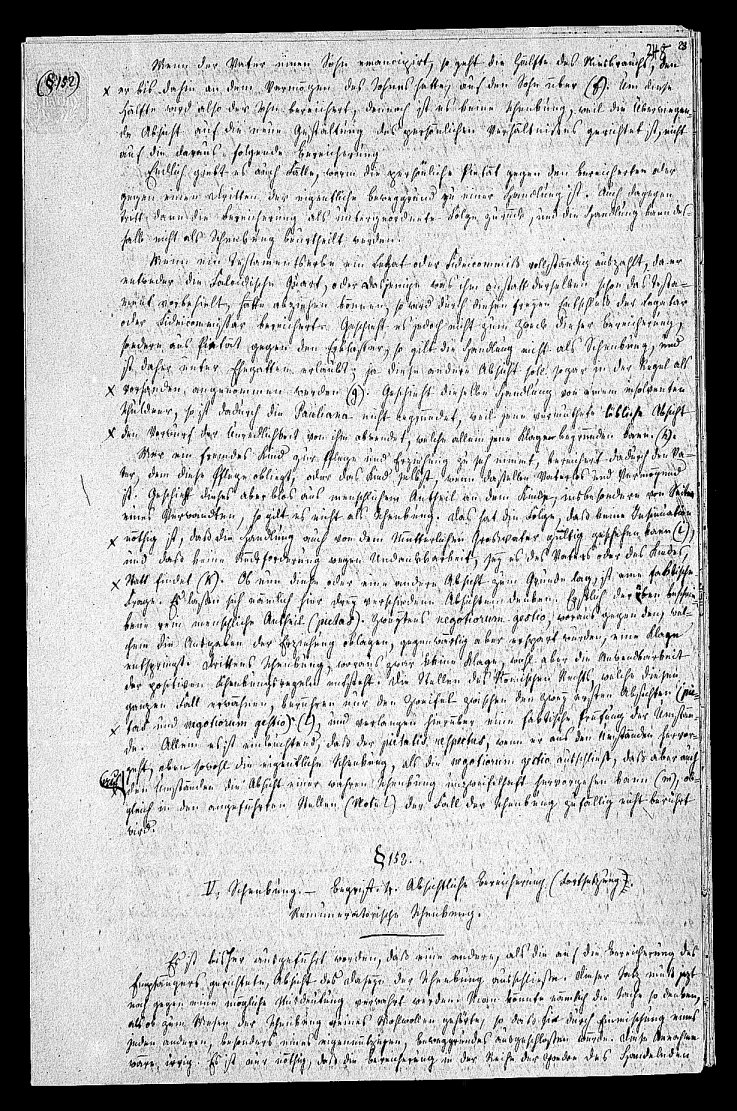 248
(§152)
Wenn der Vater einen Sohn emancipirt, so geht die Hälfte des Niesbrauchs, den
x er bis dahin an dem Vermögen des Sohnes hatte, auf den Sohn über (f). Um diese
Hälfte wird also der Sohn bereichert, dennoch ist es keine Schenkung, weil die überwiegen-
de Absicht auf die neue Gestaltung des persönlichen Verhältnisses gerichtet ist, nicht
auf die daraus folgende Bereicherung.
Endlich giebt es auch Fälle, worin die persönliche Pietät gegen den Bereicherten oder
gegen einen Dritten der eigentliche Beweggrund zu einer Handlung ist. Auch dagegen
tritt dann die Bereicherung als untergeordnete Folge zurück, und die Handlung kann des-
halb nicht als Schenkung beurtheilt werden.
Wenn ein Testamentserbe ein Legat oder Fideicommiß vollständig auszahlt, da er
entweder die Falcidische Quart, oder dasjenige was ihm anstatt derselben schon das Testa-
ment vorbehielt, hätte abziehen können, so wird durch diesen freyen Entschluß der Legatar
oder Fideicommissar bereichert. Geschieht es jedoch nicht zum Zweck dieser Bereicherung,
sondern aus Pietät gegen den Erblasser, so gilt die Handlung nicht als Schenkung, und
ist daher unter Ehegatten erlaubt; ja diese andere Absicht soll sogar in der Regel als
x vorhanden angenommen werden (g). Geschieht dieselbe Handlung von einem insolventen
Schuldner, so ist dadurch die Pauliana nicht begründet, weil jene vermuthete löbliche Absicht
x den Vorwurf der Unredlichkeit von ihm abwendet, welche allein jene Klage begründen kann (h).
Wer ein fremdes Kind zur Pflege und Erziehung zu sich nimmt, bereichert dadurch den Va-
ter, dem diese Pflege obliegt, oder das Kind selbst, wenn dasselbe vaterlos und vermögend
ist. Geschieht dieses aber blos aus menschlichem Antheil an dem Kinde, insbesondere von Seiten
eines Verwandten, so gilt es nicht als Schenkung. Das hat die Folge, daß keine Insinuation
x nöthig ist, daß die Handlung auch von dem mütterlichen Großvater gültig geschehen kann (i),
und daß keine Rückforderung wegen Undankbarkeit, sey es des Vaters oder des Kindes,
x statt findet (k). Ob nun diese oder eine andere Absicht zum Grunde lag, ist eine faktische
Frage. Es lassen sich nämlich hier drey verschiedene Absichten denken. Erstlich der eben beschrie-
bene rein menschliche Antheil (pietas). Zweytens negotiorum gestio, woraus gegen den, wel-
chem die Ausgaben der Erziehung oblagen, gegenwärtig aber erspart wurden, eine Klage
entspringt. Drittens Schenkung, woraus zwar keine Klage, wohl aber die Anwendbarkeit
der positiven Schenkungsregeln entsteht. Die Stellen des Römischen Rechts, welche diesen
ganzen Fall erwähnen, berühren nur den Zweifel zwischen den zwey ersten Absichten (pie-
x tas und negotiorum gestio) (l), und verlangen hierüber eine faktische Prüfung der Umstän-
de. Allein es ist einleuchtend, daß der pietatis respectus, wenn er aus den Umständen hervor-
geht, eben sowohl die eigentliche Schenkung, als die negotiorum gestio ausschließt, daß aber auch
den Umständen die Absicht einer wahren Schenkung unzweifelhaft hervorgehen kann (m), ob-
gleich in den angeführten Stellen (Note l) der Fall der Schenkung zufällig nicht berührt
wird.
§ 153.
IV. Schenkung. — Begriff. Absichtliche Bereicherung (Fortsetzung).
Remuneratorische Schenkung.
Es ist bisher ausgeführt worden, daß eine andere, als die auf die Bereicherung des
Empfängers gerichtete, Absicht das Daseyn der Schenkung ausschließe. Dieser Satz muß jetzt
noch gegen eine mögliche Misdeutung verwahrt werden. Man könnte nämlich die Sache so denken,
als ob zum Wesen der Schenkung reines Wohlwollen gehörte, so daß sie durch Einmischung eines
jeden anderen, besonders eines eigennützigen, Beweggrundes ausgeschlossen würde. Diese Annahme
wäre irrig. Es ist nur nöthig, daß die Bereicherung in der Reihe der Zwecke des Handelnden